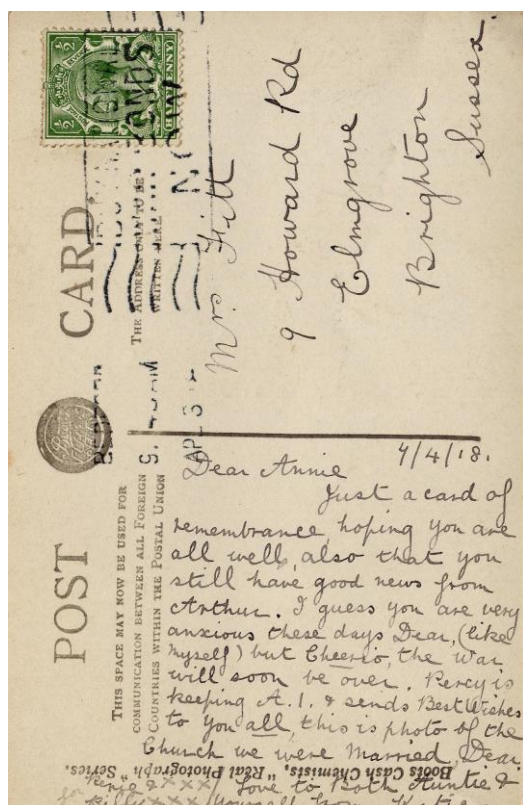 POST CARD
THIS SPACE MAY NOW BE USED FOR
COMMUNICATION BETWEEN ALL FOREIGN
COUNTRIES WITHIN THE POSTAL UNION
THE ADDRESS ONLY TO BE
WRITTEN HERE
½ ½
PENNY
BONDS
Mrs Fitt
9 Howard Rd
Elmgrove
Brighton
Sussex.
4/4/18.
Dear Annie
Just a card of
remembrance, hoping you are
all well, also that you
still have good news from
Arthur. I guess you are very
anxious these days Dear, (like
myself) but Cheerio, the War
will soon be over. Percy is
keeping A.1. & sends Best Wishes
to You all, this is photo of the
Church we were Married, Dear.
Love to Both Auntie &
Billy xxx Yourself from
Boots Cash Chemists, "Real Photograph" Series.